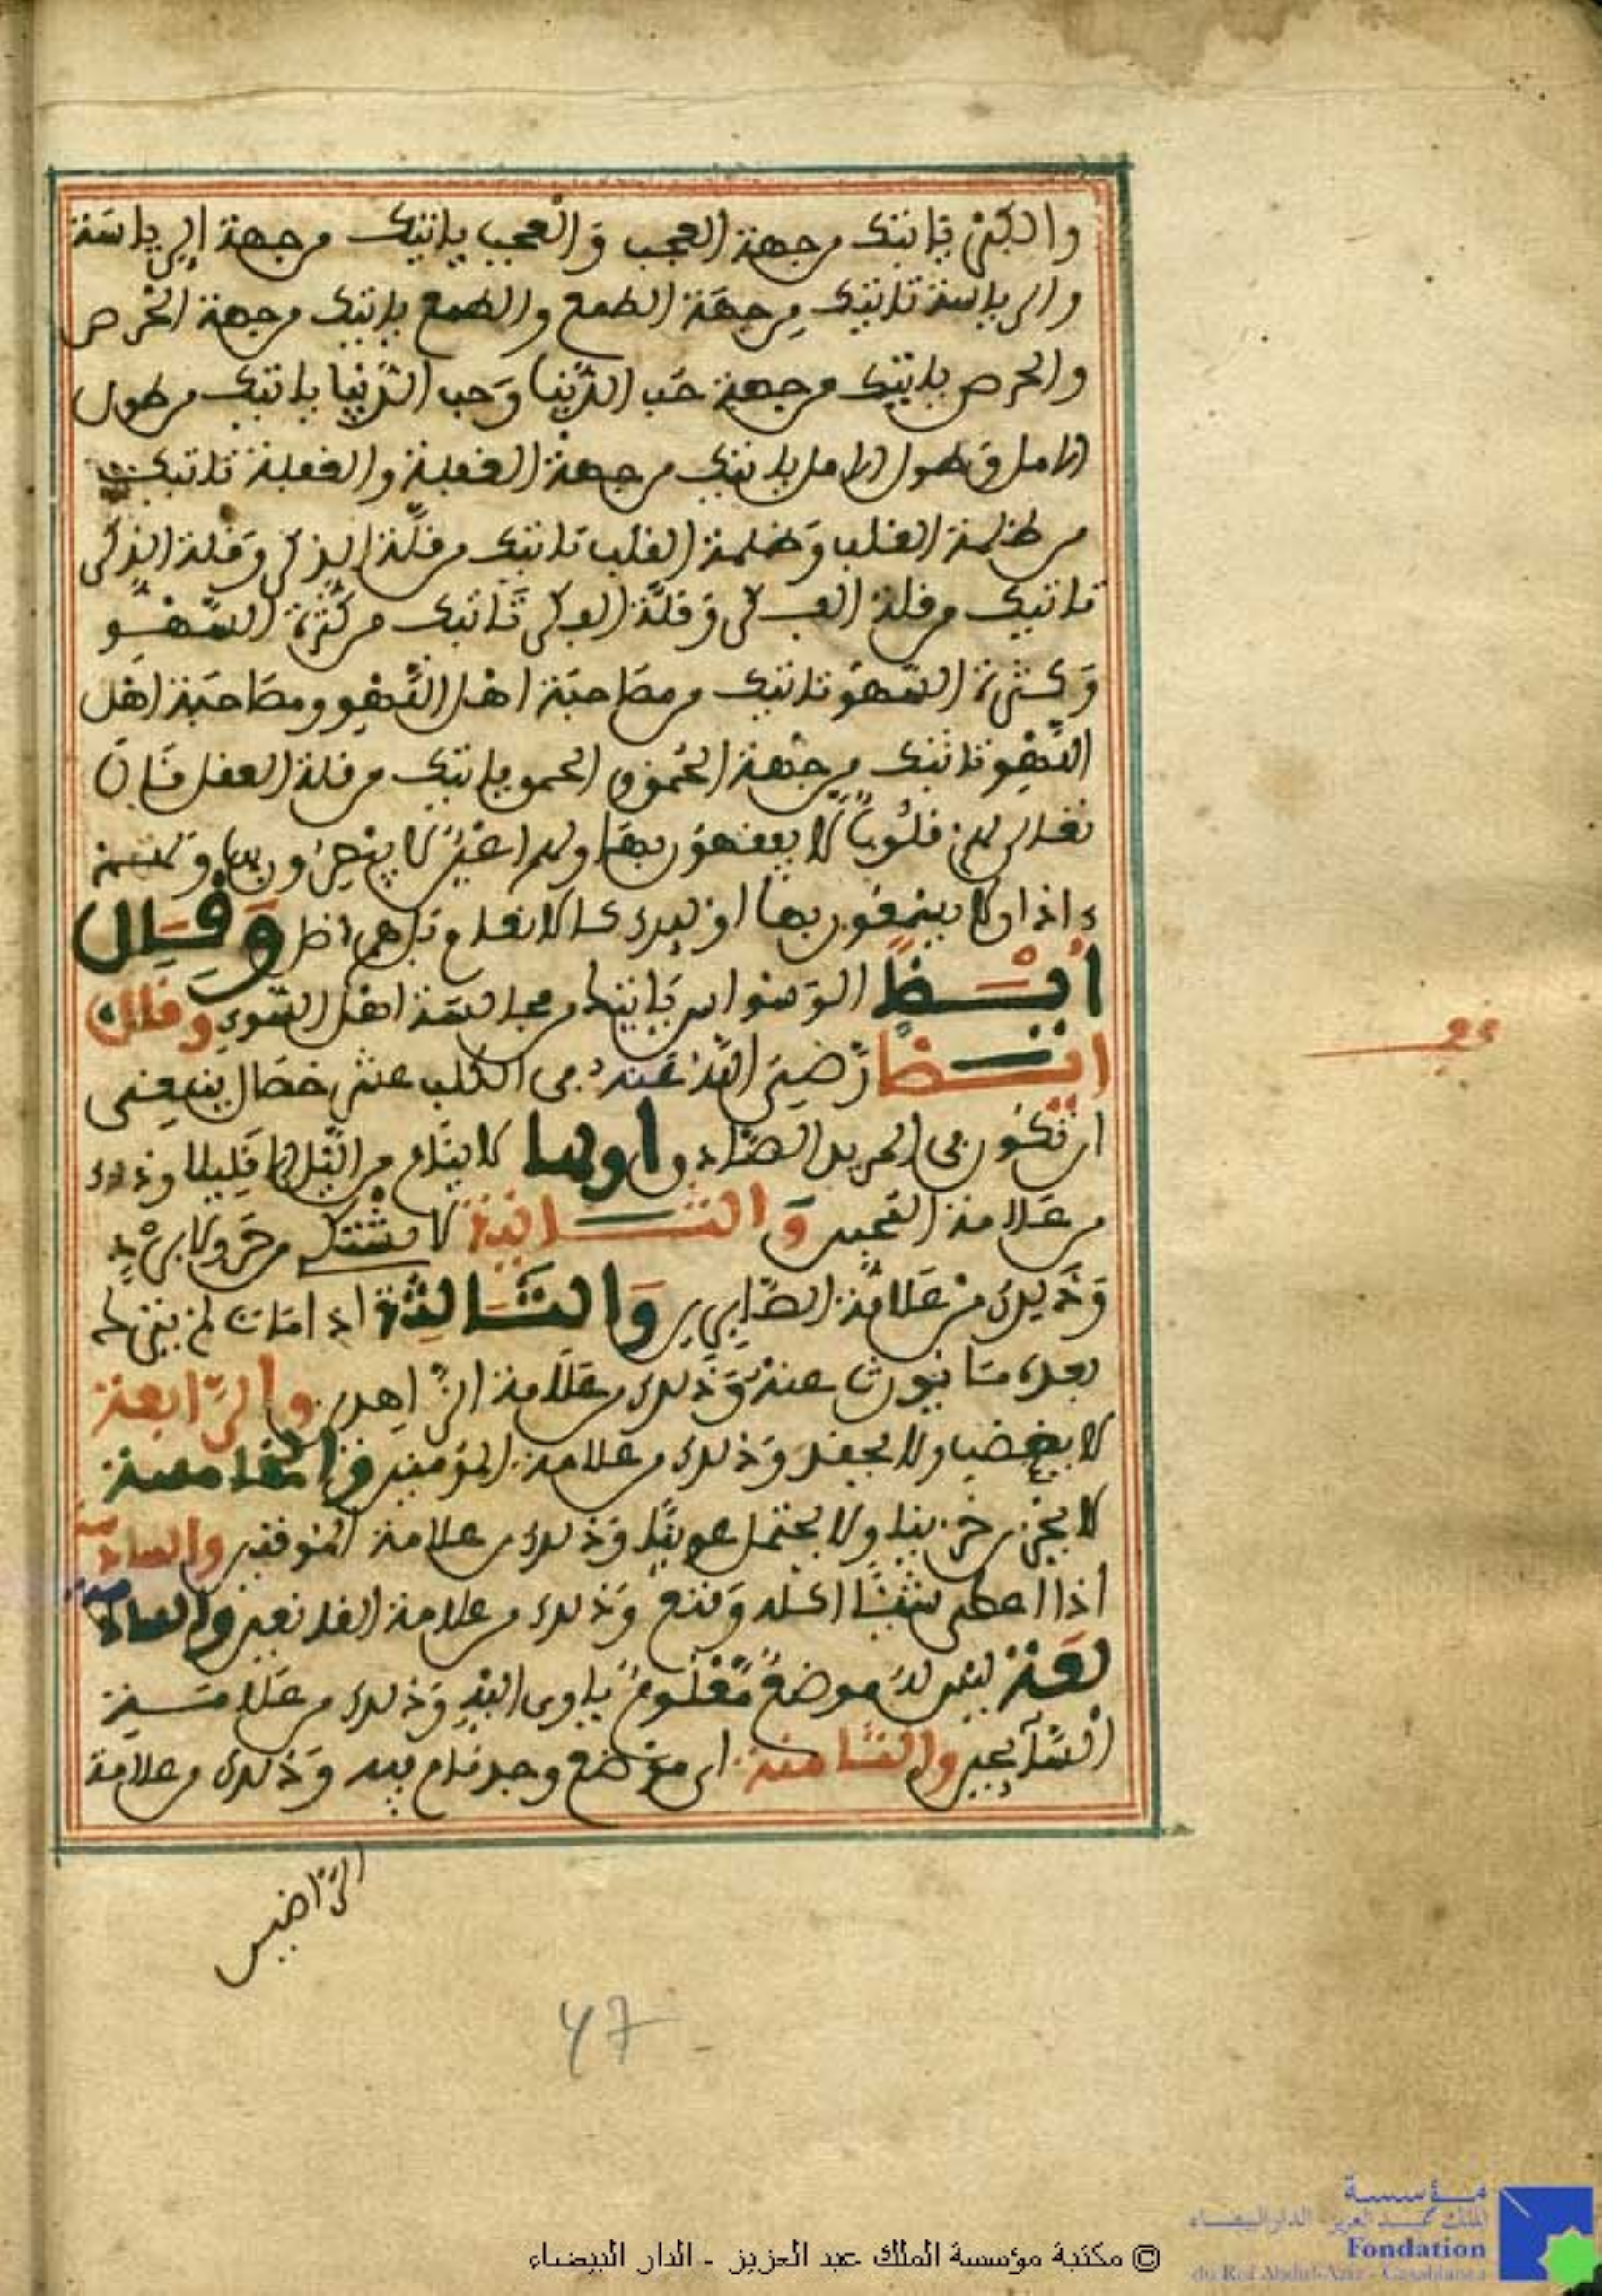 والكبر ياتيك من جهة العجب والعجب ياتيك من جهة الرياسة
والرياسة تاتيك من جهة الطمع والطمع ياتيك من جهة الحرص
والحرص ياتيك من جهة حب الدنيا وحب الدنيا ياتيك من طول
الامل وطول الامل ياتيك من جهة الغفلة والغفلة تاتيك
من ظلمة القلب وظلمة القلب تاتيك من قلة الذكر وقلة الذكر
تاتيك من قلة الفكر وقلة الفكر تاتيك من كثرة السهو
وكثرة السهو تاتيك من مصاحبة اهل السهو ومصاحبة اهل
السهو تاتيك من جهة الحمق والحمق ياتيك من قلة العقل قال
تعالى لهم قلوب لا يفقهون بها ولهم اعين لا يبصرون بها ولهم
ءاذان لا يسمعون بها اوليك كالانعام بل هم اضل وقال
ايضا الوسواس ياتيك من مجالسة اهل السوء وقال
ايضا رضي الله عنه في الكلب عشر خصال ينبغي
ان تكون في المريد الصادق اولها لا ينام من الليل الا قليلا وذلك
من علامة المحبين والثانية لا يشتك من حر ولا برد
وذلك من علامة الصابرين والثالثة اذا مات لم يترك
بعده ما يورث عنه وذلك من علامة الزاهدين والرابعة
لا يغضب ولا يحقد وذلك من علامة المومنين والخامسة
لا يحزن حزينا ولا يحتمل عوينا وذلك من علامة الموقنين والسادسة
اذا اعطي شيئا اكله وقنع وذلك من علامة القانعين والسا
بعة ليس له موضع معلوم ياوي اليه وذلك من علامة
السائحين والثامنة اي موضع وجد نام فيه وذلك من علامة
الراضين
47
مؤسسة
الملك عبد العزيز الدار البيضاء
Fondation
du Roi Abdul-Aziz - Casablanca
© مكتبة مؤسسة الملك عبد العزيز - الدار البيضاء